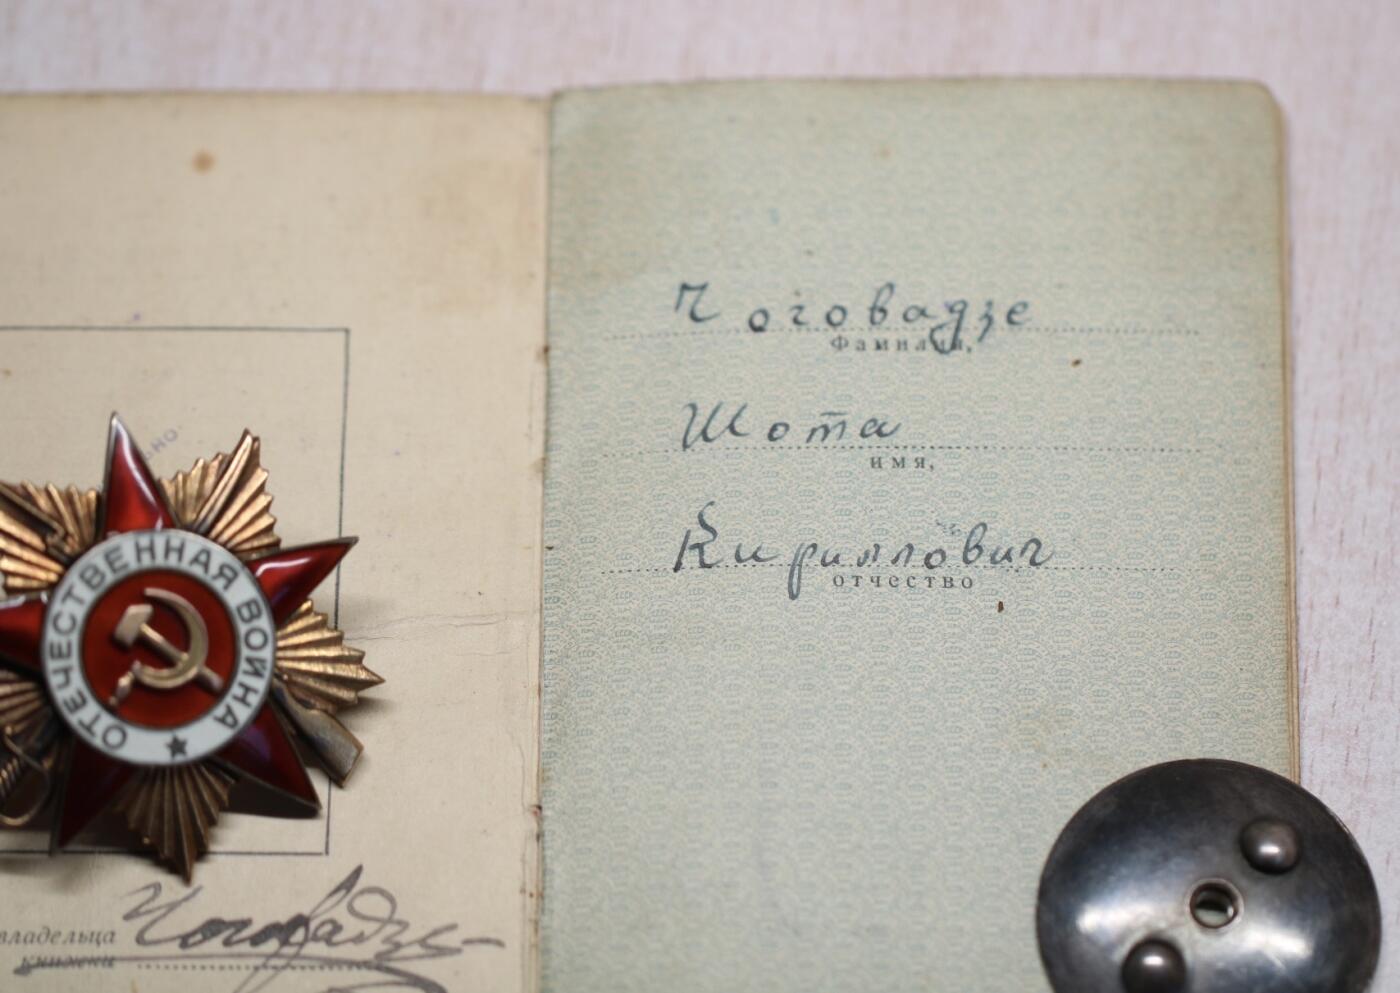 Чоговадзе
Фамилия,
Шота
имя,
Кириллович
отчество
ОТЕЧЕСТВЕННАЯ ВОЙНА
владельца Чоговадзе
книжки